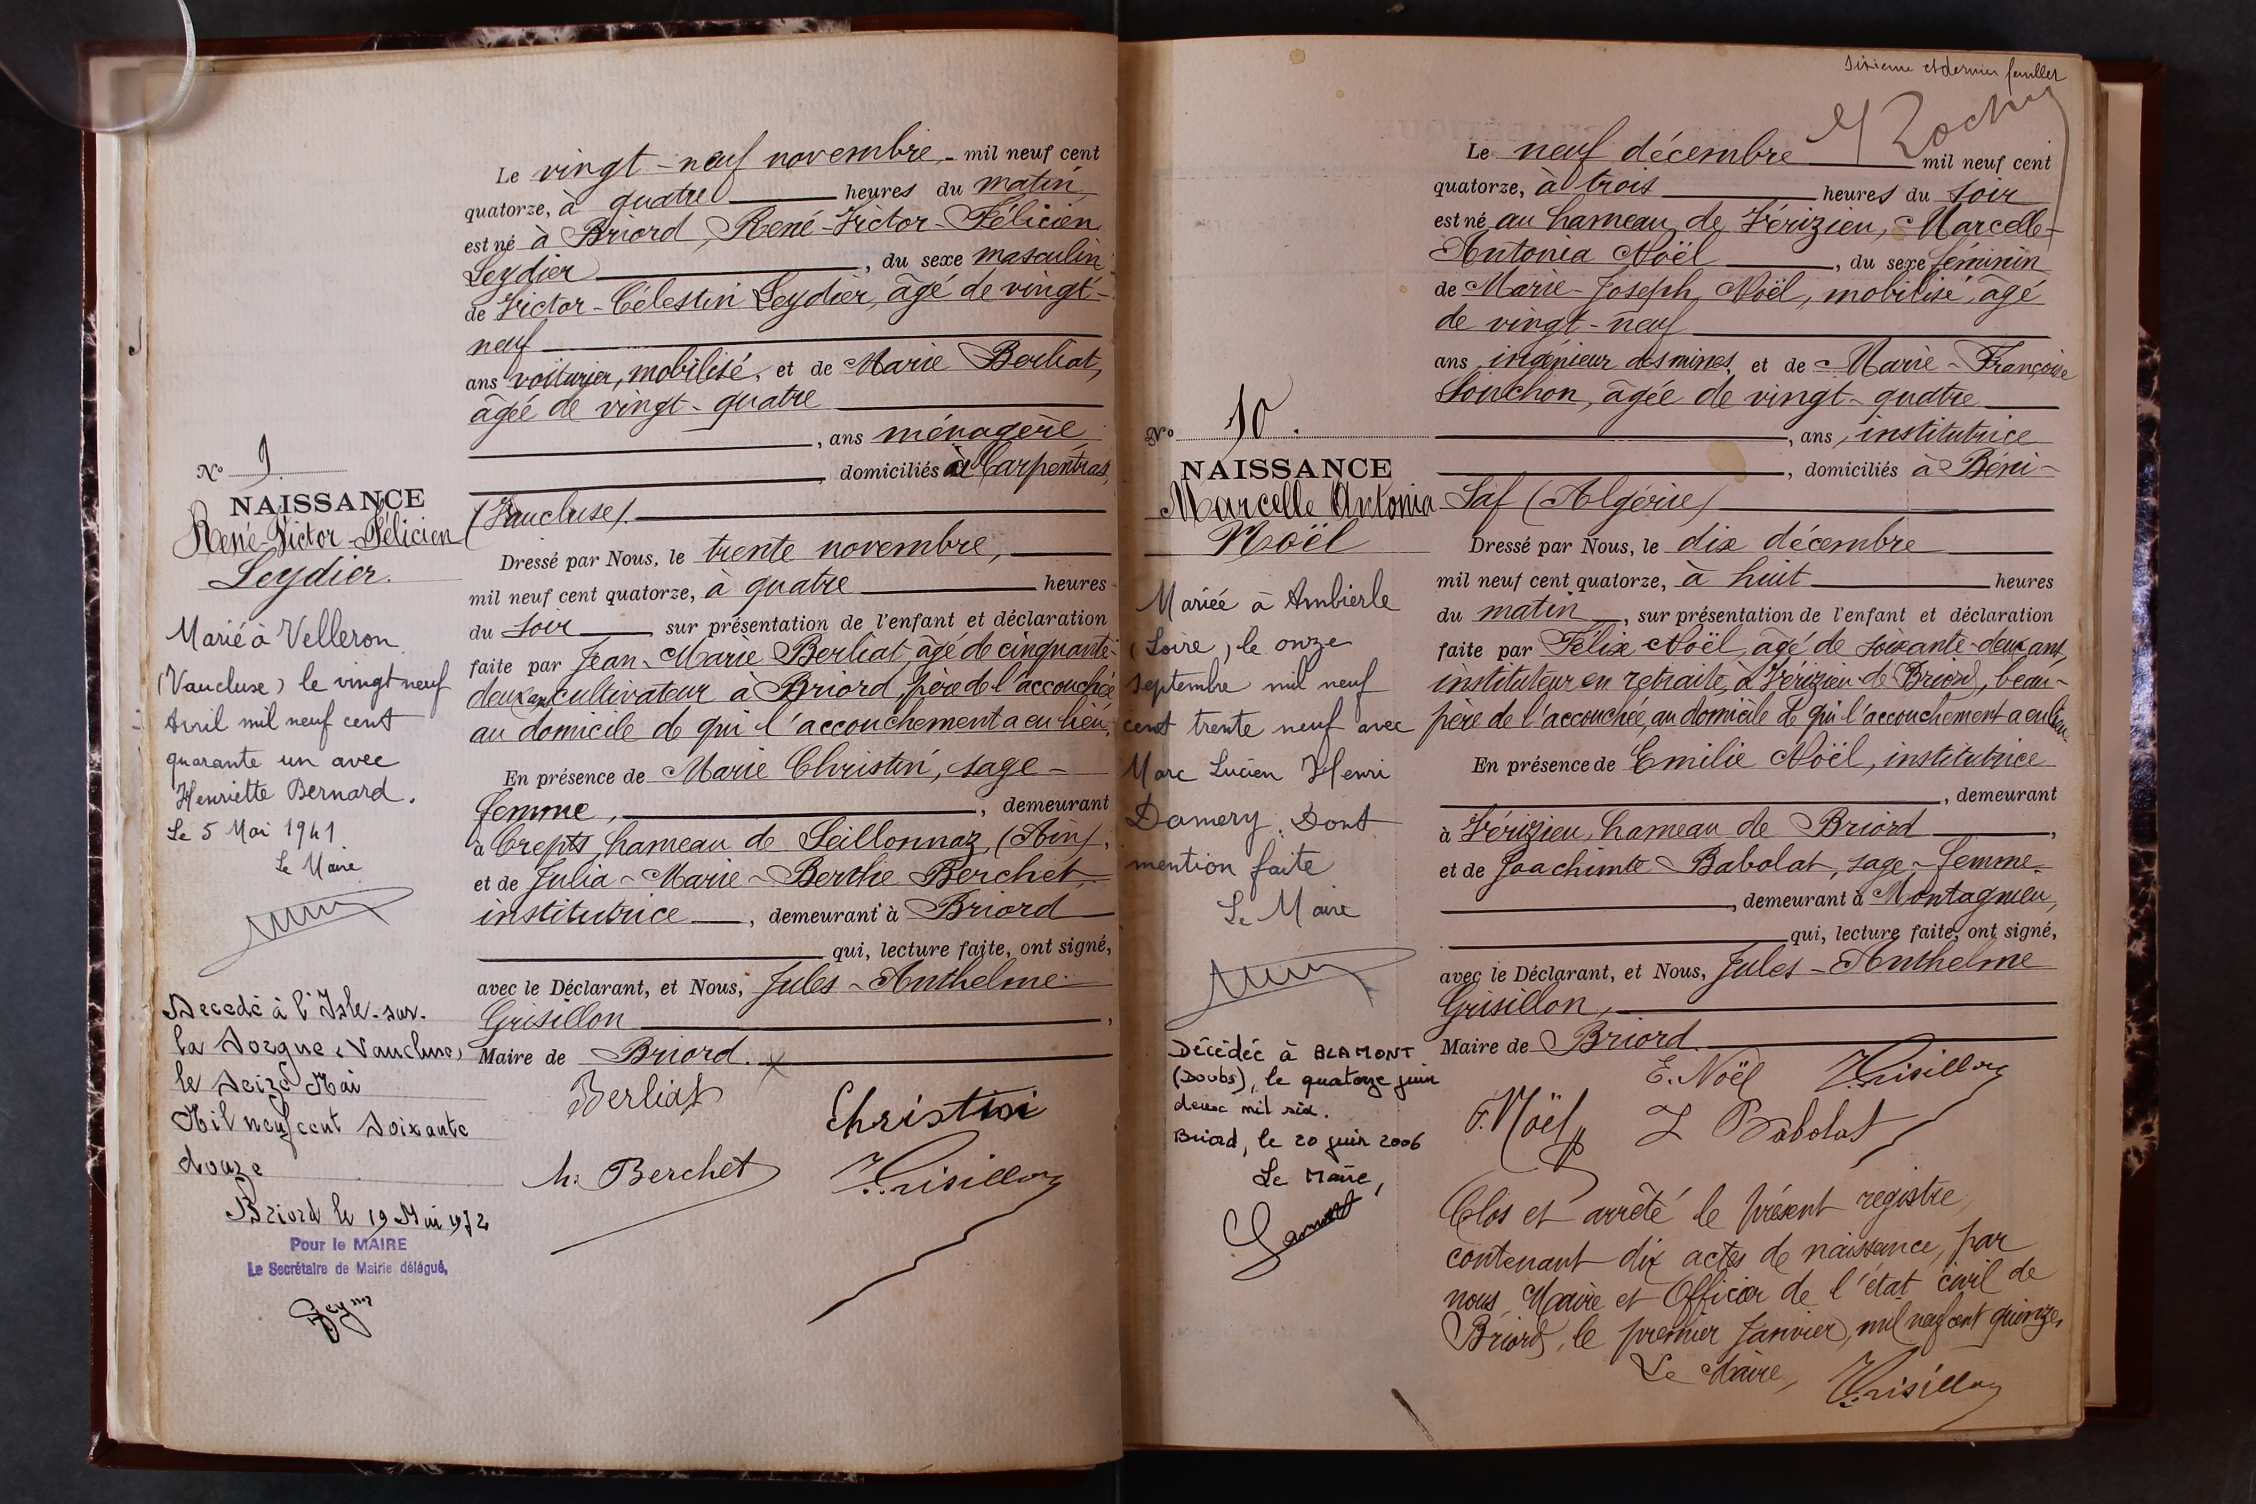 Le vingt-neuf novembre, mil neuf cent
quatorze, à quatre heures du matin
est né à Briord, René-Victor-Félicien
Leydier, du sexe masculin
de Victor-Célestin Leydier, âgé de vingt-
neuf
ans voiturier, mobilisé, et de Marie Berliat,
âgée de vingt-quatre
, ans ménagère
, domiciliés à Carpentras,
(Vaucluse).
Dressé par Nous, le trente novembre,
mil neuf cent quatorze, à quatre heures
du soir sur présentation de l'enfant et déclaration
faite par Jean-Marie Berliat, âgé de cinquante-
deux ans cultivateur à Briord, père de l'accouchée
au domicile de qui l'accouchement a eu lieu,
En présence de Marie Christin, sage-
femme, , demeurant
à Crepts, hameau de Seillonnaz, (Ain),
et de Julia-Marie-Berthe Berchet,
institutrice, demeurant à Briord
qui, lecture faite, ont signé,
avec le Déclarant, et Nous, Jules-Anthelme
Grisillon,
Maire de Briord.
Berliat
Christin
Berchet
Grisillon
No 9
NAISSANCE
René-Victor-Félicien
Leydier.
Marié à Velleron
(Vaucluse) le vingt neuf
Avril mil neuf cent
quarante un avec
Henriette Bernard.
Le 5 Mai 1941
Le Maire
Decedé à l'Isle-sur-
la Sorgue (Vaucluse)
le seize Mai
Mil neuf cent soixante
douze
Briord le 19 Mai 1972
Pour le MAIRE
Le Secrétaire de Mairie délégué,
Sixième et dernier feuillet
Le neuf décembre mil neuf cent
quatorze, à trois heures du soir
est né au hameau de Vérizieu, Marcelle-
Antonia Noël, du sexe féminin
de Marie-Joseph Noël, mobilisé, âgé
de vingt-neuf
ans ingénieur des mines, et de Marie-Françoise
Souchon, âgée de vingt-quatre
, ans, institutrice
, domiciliés à Béni-
Saf (Algérie)
Dressé par Nous, le dix décembre
mil neuf cent quatorze, à huit heures
du matin, sur présentation de l'enfant et déclaration
faite par Félix Noël, âgé de soixante-deux ans,
instituteur en retraite, à Vérizieu-de Briord, beau-
père de l'accouchée, au domicile de qui l'accouchement a eu lieu.
En présence de Emilie Noël, institutrice
, demeurant
à Vérizieu, hameau de Briord,
et de Joachimte Babolat, sage-femme.
, demeurant à Montagnieu,
qui, lecture faite, ont signé,
avec le Déclarant, et Nous, Jules-Anthelme
Grisillon,
Maire de Briord.
E. Noël Grisillon
F. Noël J Babolat
Clos et arrêté le présent registre
contenant dix actes de naissance, par
nous Maire et Officier de l'état civil de
Briord, le premier Janvier, mil neuf cent quinze,
Le Maire,
Grisillon
No 10.
NAISSANCE
Marcelle Antonia
Noël
Mariée à Ambierle
(Loire) le onze
septembre mil neuf
cent trente neuf avec
Marc Lucien Henri
Damery. Dont
mention faite
Le Maire
Décédée à BLAMONT
(Doubs), le quatorze juin
deux mil six.
Briord, le 20 juin 2006
Le Maire,